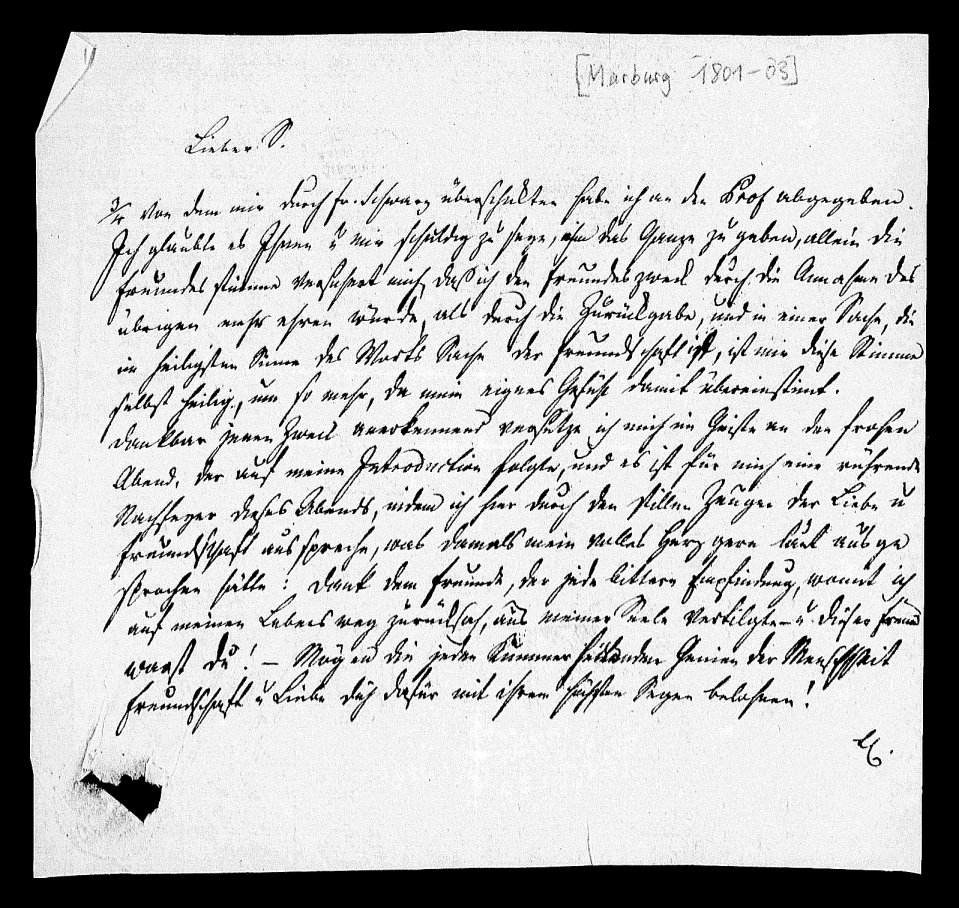 [Marburg 1801-03]
Lieber S.
3/4 von dem mir durch Fr. Schwarz überschickten habe ich an den Prof abgegeben.
Ich glaubte es Ihnen u mir schuldig zu seyn, ihm das Ganze zu geben, allein die
Freundes stimme versichert mich, daß ich den Freundes zweck durch die Annahme des
übrigen mehr ehren würde, als durch die Zurückgabe, und in einer Sache, die
im heiligsten Sinne des Worts Sache der Freundschaft ist, ist mir diese Stimme
selbst heilig, um so mehr, da mein eignes Gefühl damit übereinstimt.
Dankbar jenen Zweck anerkennend versetze ich mich im Geiste an den frohen
Abend, der auf meine Introduction folgte, und es ist für mich eine rührende
Nachfeyer dieses Abends, indem ich hier durch den stillen Zeugen der Liebe u
Freundschaft ausspreche, was damals mein volles Herz gern laut ausge
sprochen hätte: Dank dem Freunde, der jede bittere Empfindung, womit ich
auf meinen Lebens weg zurücksah, aus meiner Seele vertilgte – u dieser Freund
warst Du! – Mögen die jeden Kummer heilenden Genien der Menschheit
Freundschaft u Liebe Dich dafür mit ihrem höchsten Segen belohnen!